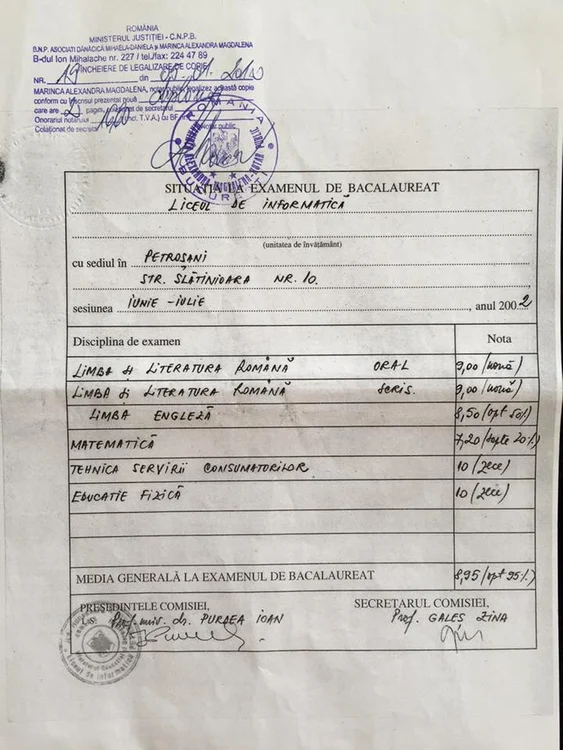 ROMÂNIA
MINISTERUL JUSTIŢIEI - C.N.P.B.
B.N.P. ASOCIATI DĂNĂCICĂ MIHAELA-DANIELA şi MARINCA ALEXANDRA MAGDALENA
B-dul Ion Mihalache nr. 227 / tel./fax: 224 47 89
ÎNCHEIERE DE LEGALIZARE DE COPIE
NR. 19 din
MARINCA ALEXANDRA MAGDALENA, notar public legalizez această copie
conform cu înscrisul prezentat nouă
care are 2 pagini, de secretariat
Onorariul notarului (incl. T.V.A.) cu BF
Colaţionat de secretar
ROMANIA
notar public
SITUAŢIA LA EXAMENUL DE BACALAUREAT
LICEUL DE INFORMATICĂ
(unitatea de învăţământ)
cu sediul în PETROŞANI
STR. SLĂTINIOARA NR. 10.
sesiunea IUNIE - IULIE, anul 2002
Disciplina de examen Nota
LIMBA şi LITERATURA ROMÂNĂ ORAL 9,00 (nouă)
LIMBA şi LITERATURA ROMÂNĂ SCRIS. 9,00 (nouă)
LIMBA ENGLEZĂ 8,50 (opt 50%)
MATEMATICĂ 7,20 (şapte 20%)
TEHNICA SERVIRII CONSUMATORILOR 10 (zece)
EDUCATIE FIZICĂ 10 (zece)
MEDIA GENERALĂ LA EXAMENUL DE BACALAUREAT 8,95 (opt 95%)
PREŞEDINTELE COMISIEI, SECRETARUL COMISIEI,
L.S. Prof. univ. dr. PURDEA IOAN Prof. GALEŞ ZINA